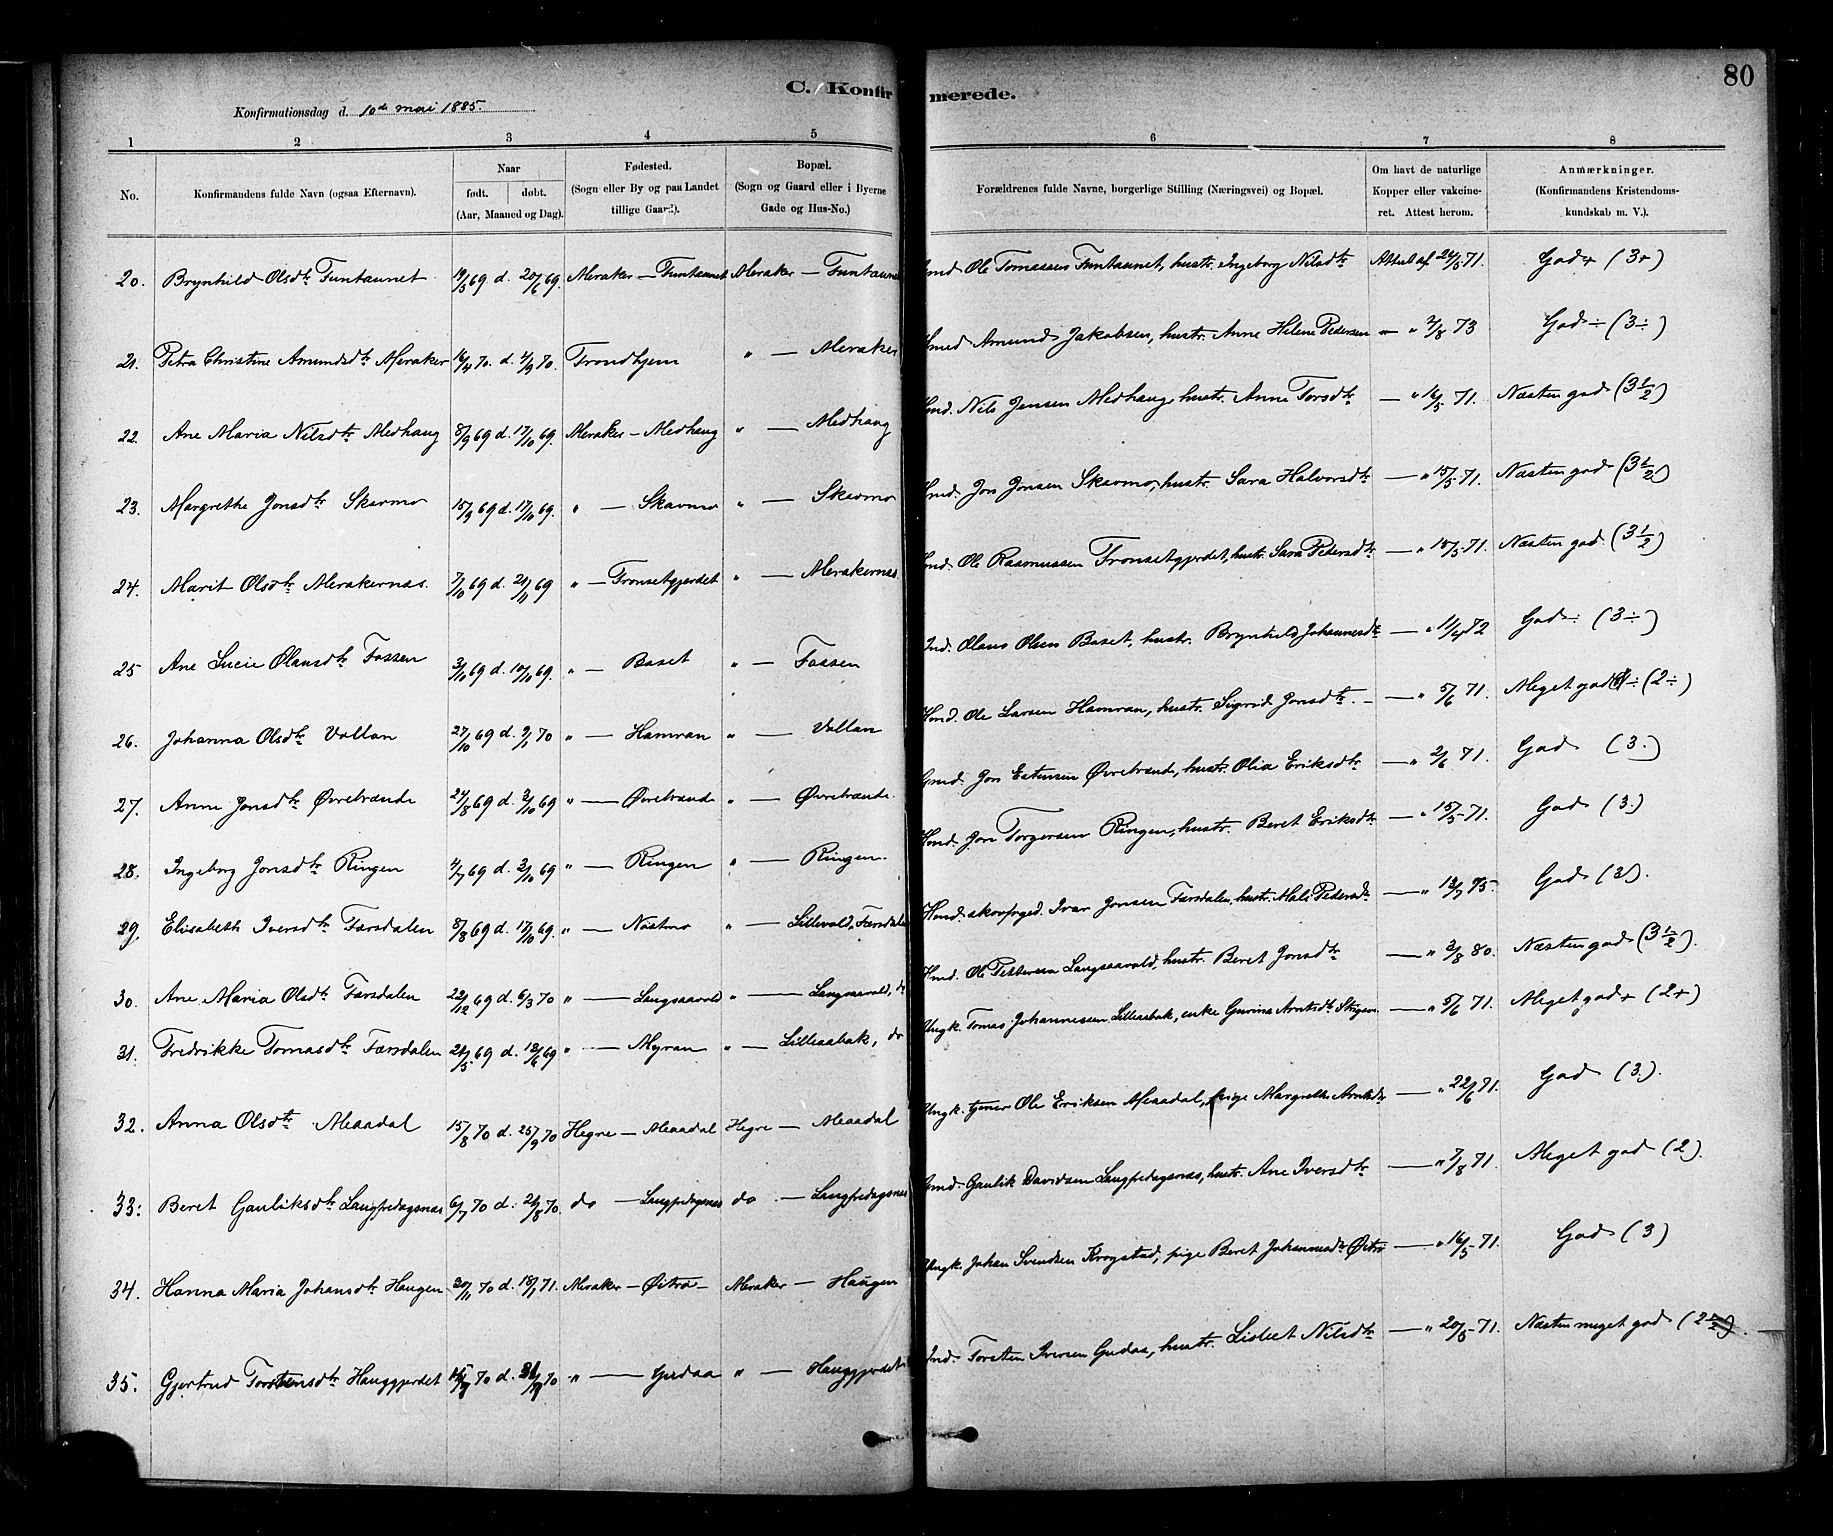 80
C. Konfirmerede.
Konfirmationsdag d. 10de mai 1885.
1 2 3 4 5 6 7 8
No. Konfirmandens fulde Navn (ogsaa Efternavn). Naar født. døbt. (Aar, Maaned og Dag). Fødested. (Sogn eller By og paa Landet tillige Gaard). Bopæl. (Sogn og Gaard eller i Byerne Gade og Hus-No.) Forældrenes fulde Navne, borgerlige Stilling (Næringsvei) og Bopæl. Om havt de naturlige Kopper eller vakcineret. Attest herom. Anmærkninger. (Konfirmandens Kristendomskundskab m. V.).
20. Brynhild Olsdtr Funtaunet 19/5 69 d. 20/6 69. Meraker — Funtaunet Meraker — Funtaunet Ole Tomassen Funtaunet, hustr. Ingeborg Nilsdtr Attest af 24/5 71. God + (3+)
21. Petra Christine Amundsdtr Meraker 16/4 70. d. 4/9 70. Trondhjem " — Meraker Amund Jakobsen, hustr. Anne Helene Pedersen — " 2/8 73 God ÷ (3÷)
22. Ane Maria Nilsdtr Medhaug 8/9 69 d. 17/10 69. Meraker — Medhaug " — Medhaug Nils Jensen Medhaug, hustr. Anne Torsdtr — " 16/5 71. Næsten god (3 1/2)
23. Margrethe Jonsdtr Skavmo 15/9 69 d. 17/10 69. " — Skavmo " — Skavmo Jon Jonsen Skavmo, hustr. Sara Halvorsdtr — " 15/5 71. Næsten god (3 1/2)
24. Marit Olsdtr Merakernas. 7/10 69 d. 21/11 69 " — Fronsetgjerdet " — Merakernas. Ole Rasmussen Fronsetgjerdet, hustr. Sara Pedersdtr — " 15/5 71. Næsten god (3 1/2)
25 Ane Lucie Olausdtr Fossen 3/10 69 d. 10/10 69. " — Baset " — Fossen Olaus Olsen Baset, hustr. Brynhild Johannesdtr — " 11/4 72 God ÷ (3÷)
26. Johanna Olsdtr Vollan 27/10 69 d. 9/1 70 " — Hamran " — Vollan Ole Larsen Hamran, hustr. Sigrid Jonsdtr. — " 5/6 71. Meget god ÷ (2÷)
27. Anne Jonsdtr Øvrebrænde 24/8 69 d. 3/10 69 " — Øvrebrænde " — Øvrebrænde. Jon Estensen Øvrebrænde, hustr. Olia Eriksdtr — " 2/6 71. God (3.)
28. Ingeborg Jonsdtr Ringen 4/7 69 d. 3/10 69 " — Ringen " — Ringen. Jon Torgersen Ringen, hustr. Beret Eriksdtr — " 15/5 71. God (3.)
29. Elisabeth Iversdtr Færsdalen 8/8 69 d. 17/10 69. " — Nostmo " — Lillevold, Færsdalen skovfoged. Ivar Jonsen Færsdalen, hustr. Mali Pedersdtr — " 13/7 75. God (3).
30. Ane Maria Olsdtr Færsdalen 22/12 69 d. 6/3 70 " — Langsaavold " — Langsaavold, do Ole Pettersen Langsaavold, hustr. Beret Jonsdtr — " 3/8 80. Næsten god (3 1/2).
31. Fredrikke Tomasdtr Færsdalen 21/5 69 d. 13/6 69 " — Myran " — Lilleaabak, do Ungk. Tomas Johannesen Lilleaabak, enke Gurina Arntsdtr Stigen — " 5/6 71. Meget god + (2+)
32. Anna Olsdtr Meaadal 15/8 70 d. 25/9 70 Hegre — Meaadal Hegre — Meaadal Ungk. tjener Ole Eriksen Meaadal, pige Margrethe Arntsdtr — " 22/6 71. God (3.).
33. Beret Gauliksdtr Langfredagsnæs 6/7 70 d. 21/8 70. do — Langfredagsnæs do. — Langfredagsnæs Gaulik Davidsen Langfredagsnæs, hustr. Ane Iversdtr — " 7/8 71. Meget god (2).
34. Hanna Maria Johansdtr Haugen 30/11 70 d. 15/1 71. Meraker — Østrø — Meraker — Haugen Ungk. Johan Svendsen Krogstad, pige Beret Johannesdtr Østrø — " 16/5 71. God (3)
35. Gjertrud Torstensdtr Hauggjerdet 15/7 70 d. 70 " — Gudaa " — Hauggjerdet Torsten Iversen Gudaa, hustr. Lisbet Nilsdtr — " 20/5 71. Næsten meget god (2 1/2).